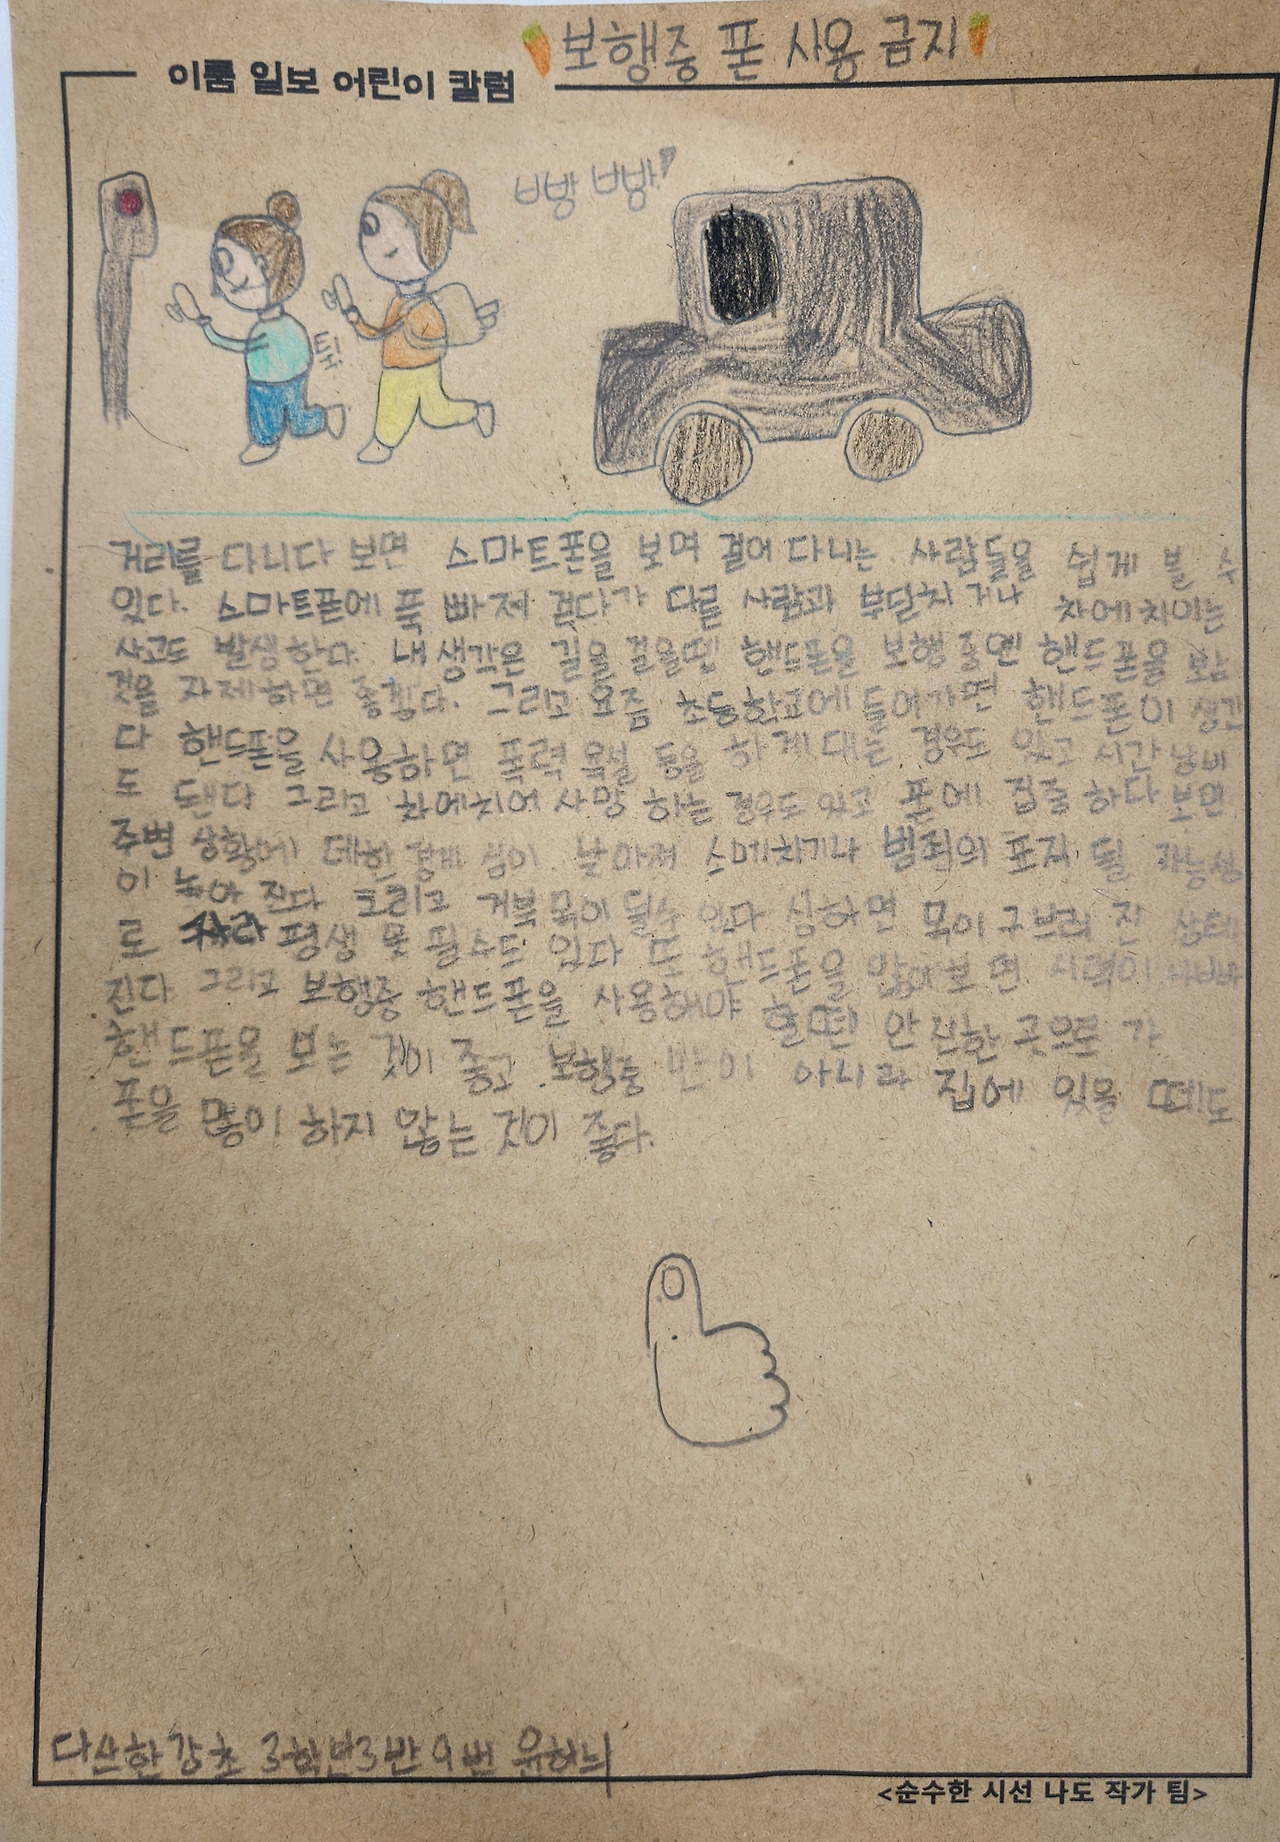 보행중 폰 사용 금지
이룸 일보 어린이 칼럼
빠방 빠방
툭!
거리를 다니다 보면 스마트폰을 보며 걸어 다니는 사람들을 쉽게 볼 수
있다. 스마트폰에 푹 빠져 걷다가 다른 사람과 부딛치거나 차에치이는
사고도 발생한다. 내생각은 길을 걸을땐 핸드폰을 보행중엔 핸드폰을 보는
것을 자제하면 좋겠다. 그리고 요즘 초등학교에 들어가면 핸드폰이 생긴
다 핸드폰을 사용하면 폭력 욕설 등을 하게 대는 경우도 있고 시간 낭비
도 됀다 그리고 차에치여 사망 하는 경우도 있고 폰에 집중 하다 보면
주변 상황에 데한 경계 심이 낮아져 소메치기나 범죄의 표적 될 가능성
이 높아 진다 그리고 거북목이 될수 있다 심하면 목이 구브러 진 상태
로 평생 못 필수도 있다 또 핸드폰을 많이 보면 시력이 나빠
진다 그리고 보행중 핸드폰을 사용해야 할땐 안전한 곳으로 가
핸드폰을 보는 것이 좋고 보행중 만이 아니라 집에 있을 떼도
폰을 많이 하지 않는 것이 좋다.
다산한강초 3학년3반 9번
<순수한 시선 나도 작가 팀>